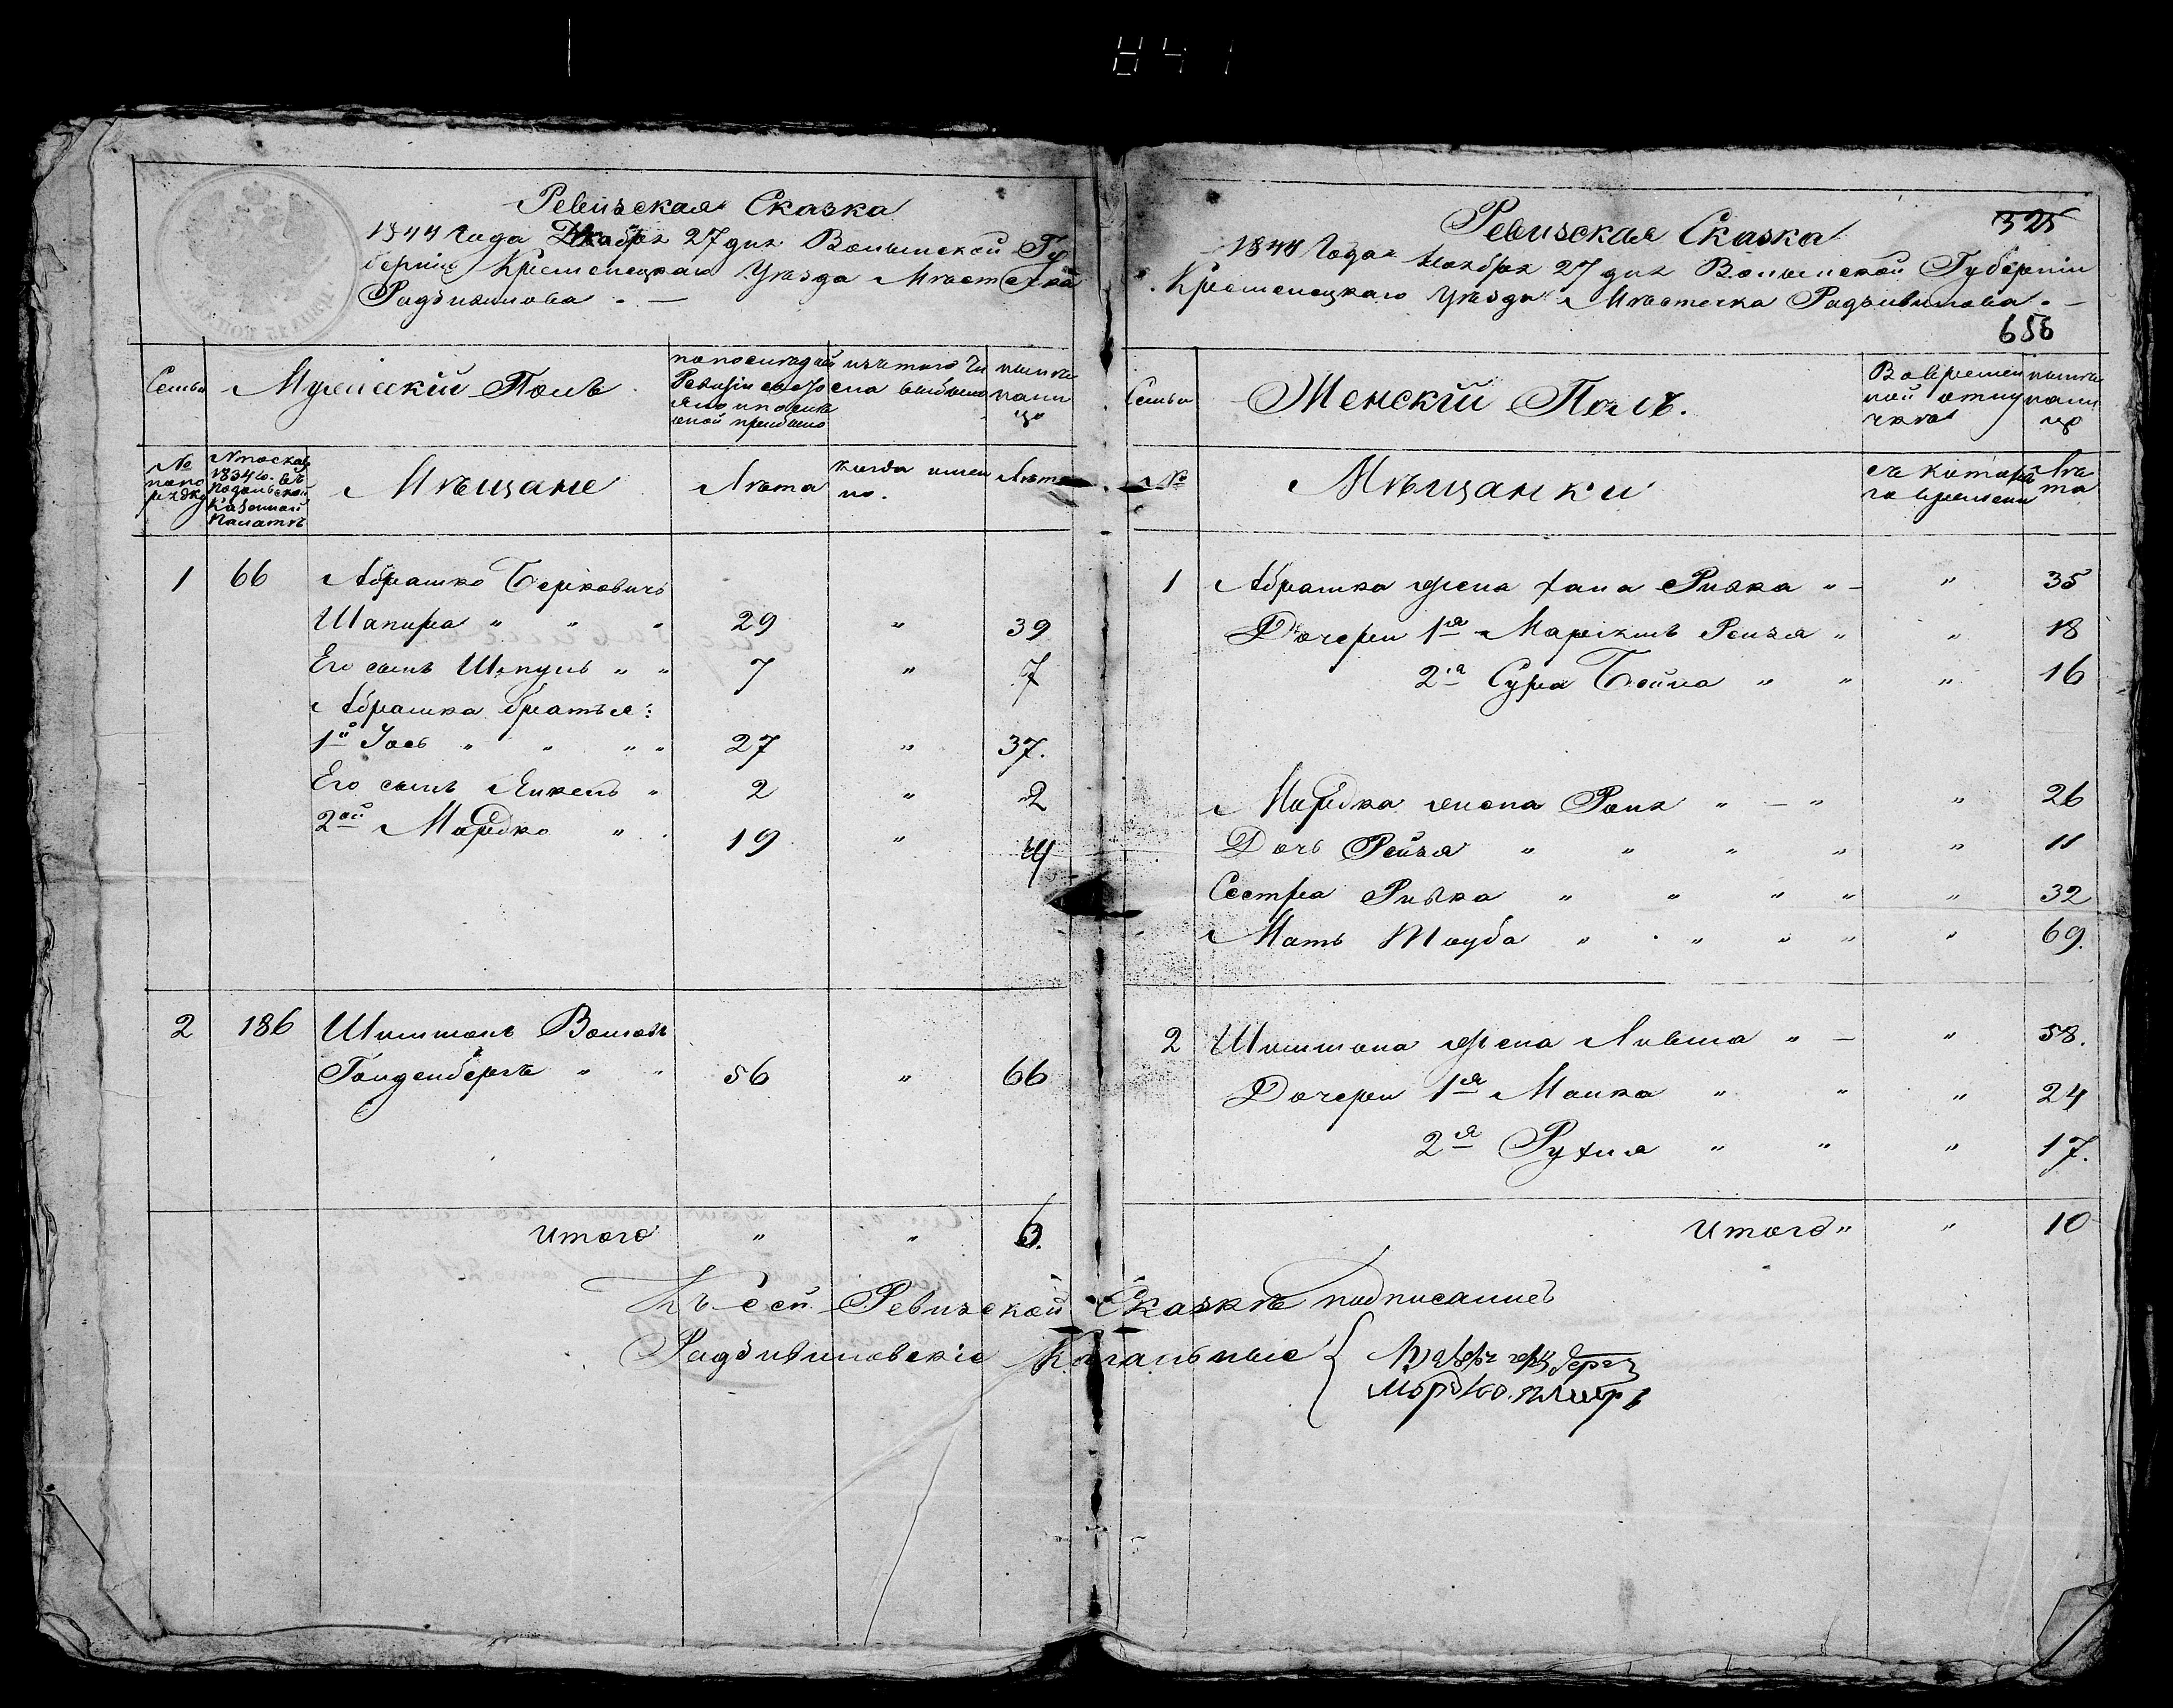 841
Ревизская Сказка
1844 Года Ноября 27 дня Волынской Гу
берніи Кременецкаго Уѣзда Мѣстечка
Радзивилова . —
Семьи
Мужескій Полъ
по послѣдней
Ревизіи состо
яло и послѣ
оной прибыло
изъ того чи
сла выбыло
нынѣ
нали
цо
№
по по
рядку
№ по сказ
1834 го. въ
Подольской
Казенной
Палатѣ
Мѣщане
Лѣта
когда имен
но.
Лѣта
1 66 Абрашко Берковичъ
Шапира " " " 29 " 39
Его сынъ Шпуль " " 7 " 7
Абрашка братья:
1й Іось " " " " 27 " 37.
Его сынъ Янкель " 2 " 2
2ой Мордко " . 19 "
2 186 Шимшонъ Волковъ
Голденбергъ " " 56 " 66
Итого " " 6.
525
Ревизская Сказка
1844 Года Ноября 27 дня Волынской Губерніи
Кременецкаго Уѣзда Мѣстечка Радзивилова . —
656
Семьи
Женскій Полъ.
Во времен
ной отлу
чкѣ
нынѣ
нали
цо
№
Мѣщанки
съ котора
го времени
Лѣ
та
1 Абрашка жена Хана Ривка " — " 35
Дочери 1я Маріямъ Рейзя " " 18
2я Сура Бейла " " " 16
Мордка жена Роня " — " " 26
Дочь Рейзя " " " " " 11
Сестра Ривка " " " " " 32
Мать Тауба " . " " " " 69.
2 Шимшона жена Ливша " — " 58.
Дочери 1я Малка " " " 24
2я Рухля " " " 17.
Итого " " 10
Къ сей Ревизской Сказкѣ подписались
Радзивиловскіе Кагальные {
Мордко